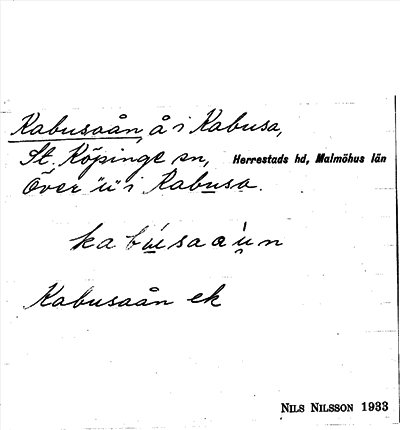 Kabusaån, å i Kabusa,
St. Köpinge sn, Herrestads hd, Malmöhus län
Över "u" i Kabusa.
kabúsaàun
Kabusaån ek
NILS NILSSON 1933